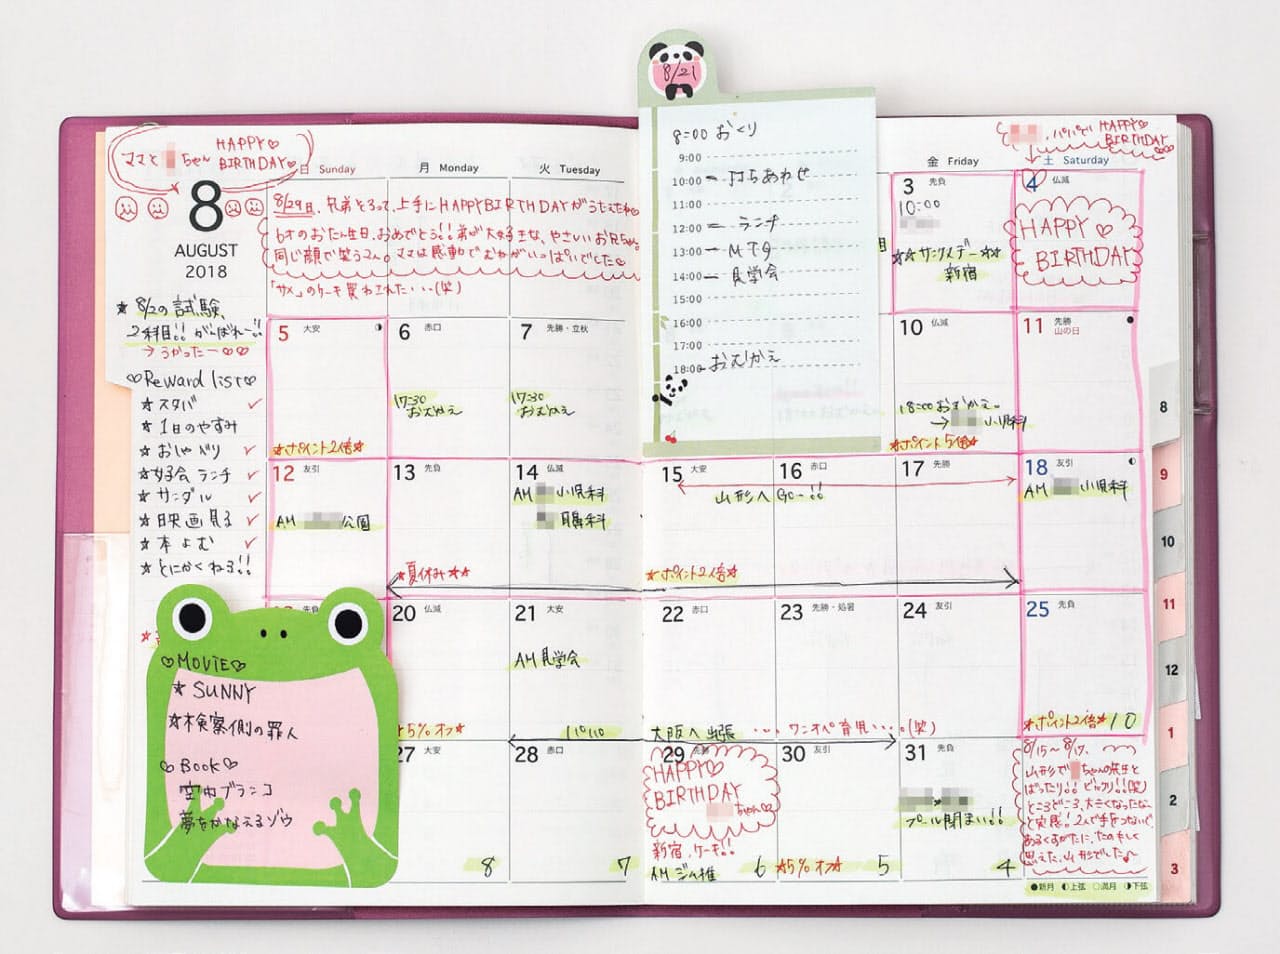 8/21
8:00 おくり
9:00
10:00 打ちあわせ
11:00
12:00 ランチ
13:00 MTG
14:00 見学会
15:00
16:00
17:00
18:00 おむかえ
ママと ちゃん HAPPY♡
BIRTHDAY♡
8
AUGUST
2018
★8/2の試験、
2科目!! がんばれー!!
→うかったー♡♡
♡Reward list♡
★スタバ ✓
★1日のやすみ
★おしゃべり ✓
★女子会 ランチ ✓
★サンダル ✓
★映画見る ✓
★本よむ ✓
★とにかくねる!!
♡MOVIE♡
★SUNNY
★検察側の罪人
♡BOOK♡
空中ブランコ
夢をかなえるゾウ
日 Sunday
月 Monday
火 Tuesday
金 Friday
土 Saturday
HAPPY♡
BIRTHDAY
8/29日、兄弟そろって、上手にHAPPYBIRTHDAYがうたえたね
6才のおたん生日、おめでとう!! 弟が大好きな、やさしいお兄ちゃん
同じ顔で笑う二人。ママは感動でむねがいっぱいでした♡
「サメ」のケーキ買わされた・・・(笑)
3 先負
10:00
新宿
4 仏滅
HAPPY♡
BIRTHDAY
5 大安
★ポイント2倍★
6 赤口
17:30
おむかえ
7 先勝・立秋
17:30
おむかえ
10 仏滅
18:00おむかえ。
→ 小児科
★ポイント5倍★
11 先勝
山の日
12 友引
AM 公園
13 先負
★夏休み★★
14 仏滅
AM 小児科
耳鼻科
15 大安
山形へ Go-!!
★ポイント2倍★
16 赤口
17 先勝
18 友引
AM 小児科
先負
20 仏滅
★5%オフ★
21 大安
AM 見学会
22 赤口
大阪へ出張 ・・・ワンオペ育児・・・。(笑)
23 先勝・処暑
24 友引
25 先負
★ポイント2倍★ 10
27 大安
8
28 赤口
7
29 先勝
HAPPY♡
BIRTHDAY
ちゃん♡
新宿、ケーキ!!
6
30 友引
★5%オフ★ 5
31 先負
プール閉まい!!
4
8/15～8/17、
山形で ちゃんの先生と
ばったり!! ビックリ!!(笑)
ところどころ、大きくなったな、
と実感!2人で手をつないで、
あるくすがたに、たのもしく
思えた、山形でした
●新月 ◐上弦 ○満月 ◑下弦
8
9
10
11
12
1
2
3